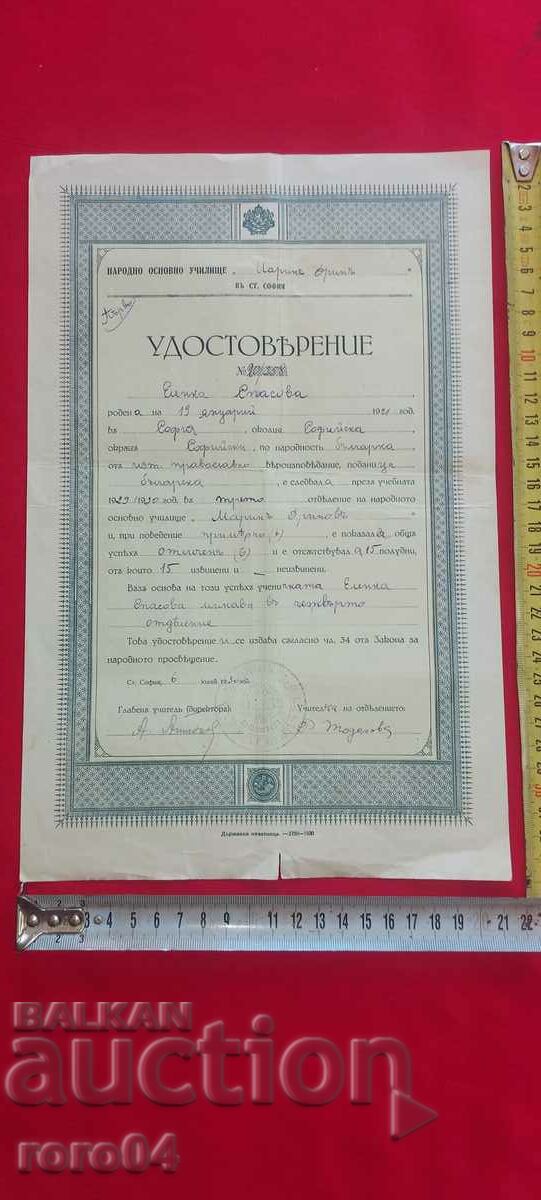 НАРОДНО ОСНОВНО УЧИЛИЩЕ „
ВЪ СТ. СОФИЯ
УДОСТОВѢРЕНИЕ
№
Еленка Спасова
родена на 19 януарий 1921 год.
въ София, околия Софийска
окрѫгъ Софийски, по народность българка
отъ изт. православно вѣроизповѣдание, поданица
българка, е следвала презъ учебната
1929/1930 год. въ трето отдѣление на народното
основно училище „Маринъ Дриновъ"
и, при поведение примѣрно, е показала общъ
успѣхъ отличенъ (6) и е отсѫтствувала 15 полудни,
отъ които 15 извинени и — неизвинени.
Възъ основа на този успѣхъ ученичката Еленка
Спасова минава въ четвърто
отдѣление
Това удостовѣрение се издава съгласно чл. 34 отъ Закона за
народното просвѣщение.
Ст. София, 6 юлий
Главенъ учитель (директоръ): Учителка на отдѣлението:
Държавна печатница —
2 3 4 5 6 7 8 9 11 12 13 14 15 16 17 18 19 21 22
BALKAN
auction
roro04